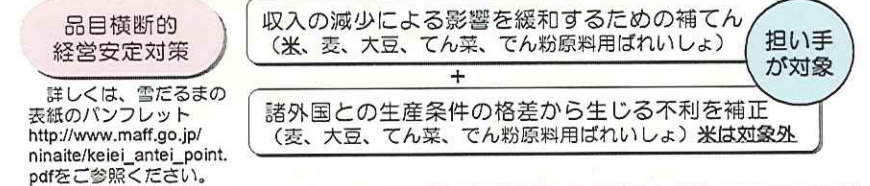 品目横断的
経営安定対策
詳しくは、雪だるまの
表紙のパンフレット
http://www.maff.go.jp/
ninaite/keiei_antei_point.
pdfをご参照ください。
収入の減少による影響を緩和するための補てん
（米、麦、大豆、てん菜、でん粉原料用ばれいしょ）
+
諸外国との生産条件の格差から生じる不利を補正
（麦、大豆、てん菜、でん粉原料用ばれいしょ）米は対象外
担い手
が対象